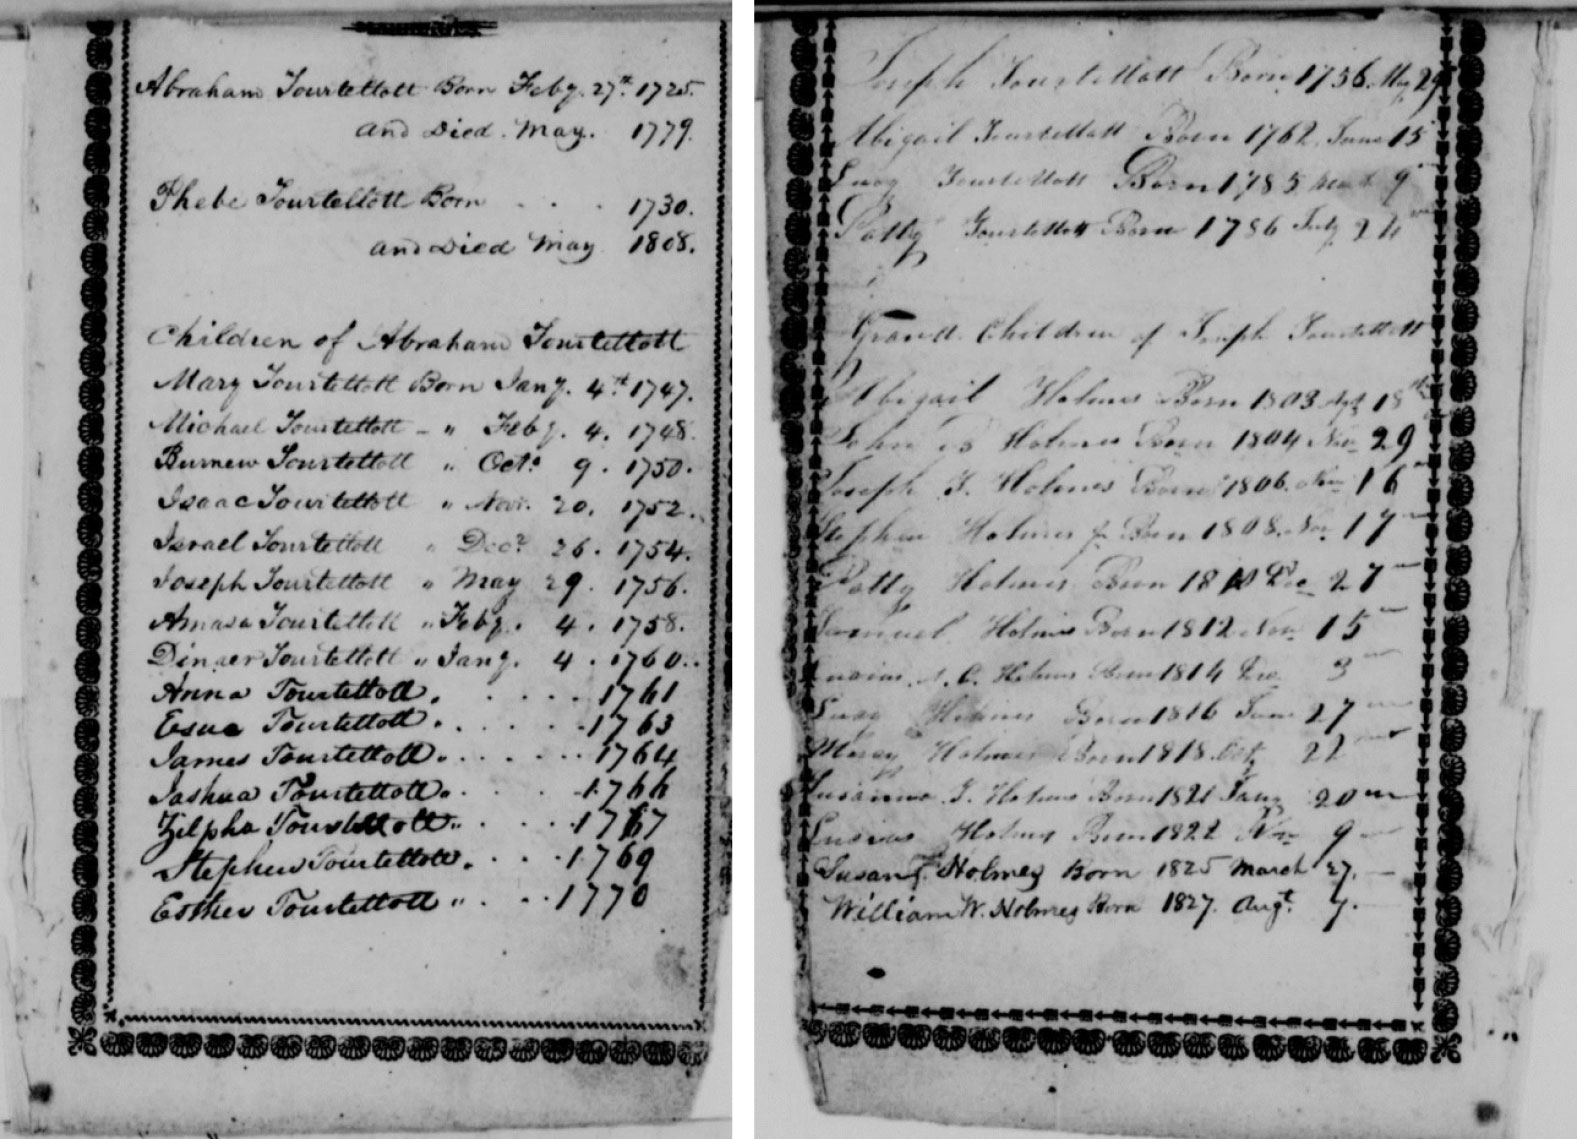 Abraham Tourtellott Born Feby. 27th. 1725.
and Died. May. 1779.
Phebe Tourtellott Born . . . 1730.
and Died May 1808.
Children of Abraham Tourtellott
Mary Tourtellott Born Jany. 4th. 1747.
Michael Tourtellott - " Feby. 4. 1748.
Tourtellott " Octr. 9. 1750.
Isaac Tourtellott " Novr. 20. 1752.
Israel Tourtellott " Decr. 26. 1754.
Joseph Tourtellott " May 29. 1756.
Amasa Tourtellott " Feby. 4. 1758.
Tourtellott " Jany. 4. 1760.
Anna Tourtellott. . . . . 1761
Tourtellott. . . . . 1763
James Tourtellott. . . . . 1764
Jashua Tourtellott. . . . 1766
Zilpha Tourtellott. . . . 1767
Stephen Tourtellott. . . . 1769
Esther Tourtellott " . . . 1770
Joseph Tourtellott Born 1756. May 29
Abigail Tourtellott Born 1762. June 15
Lucy Tourtellott Born 1785 9
Patty Tourtellott Born 1786 July
Grand Children of Joseph Tourtellott
Abigail Holmes Born 1803 18th
John Holmes Born 1804 Nov 29
Joseph T. Holmes Born 1806. Nov 16
Stephen Holmes Jr Born 1808. Nov 17
Patty Holmes Born 1810 Dec 27
Samuel Holmes Born 1812 Nov 15
Holmes Born 1814 Dec 3
Lucy Holmes Born 1816 June 27
Holmes Born 1818. 22
Susanna T. Holmes Born 1821 Jany 20
Holmes Born 1822 Nov 9
Susan T. Holmes Born 1825 March 27.
William W. Holmes Born 1827. Augt. 7.